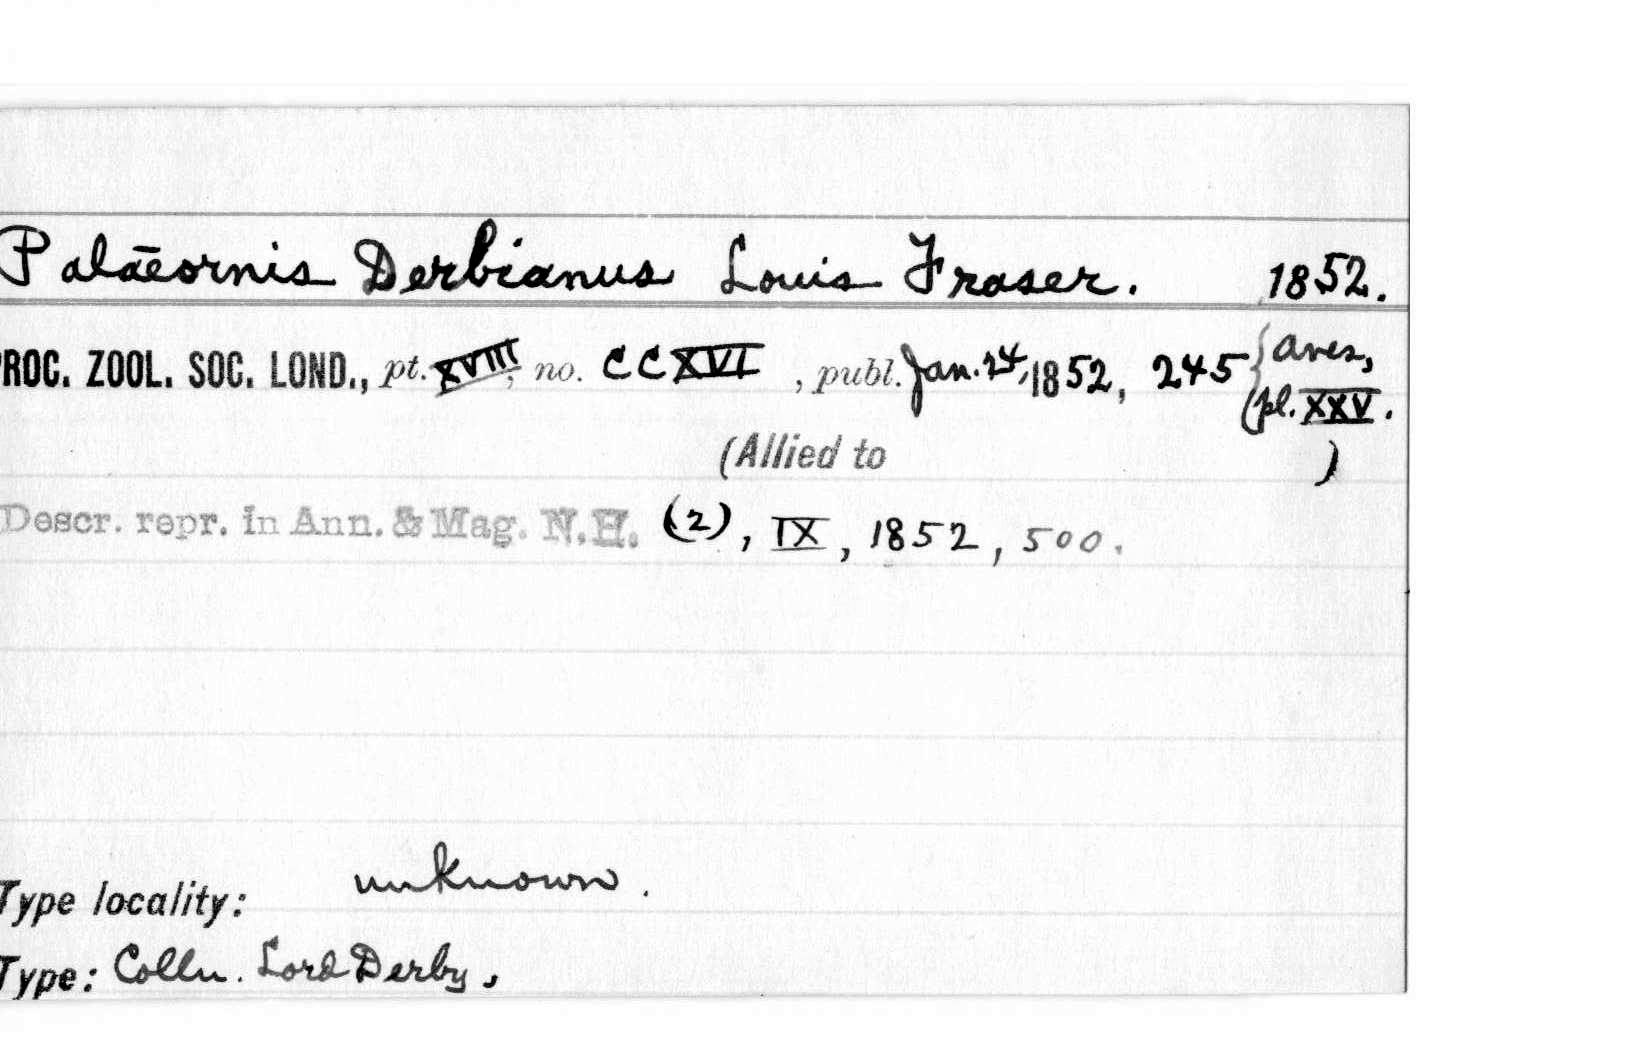 Palāeornis Derbianus Louis Fraser. 1852.
PROC. ZOOL. SOC. LOND., pt. XVIII, no. CCXVI , publ. Jan. 24, 1852, 245 { Aves,
(pl. XXV.
(Allied to )
Descr. repr. in Ann. & Mag. N.H. (2), IX, 1852, 500.
Type locality: unknown.
Type: Colln. Lord Derby,